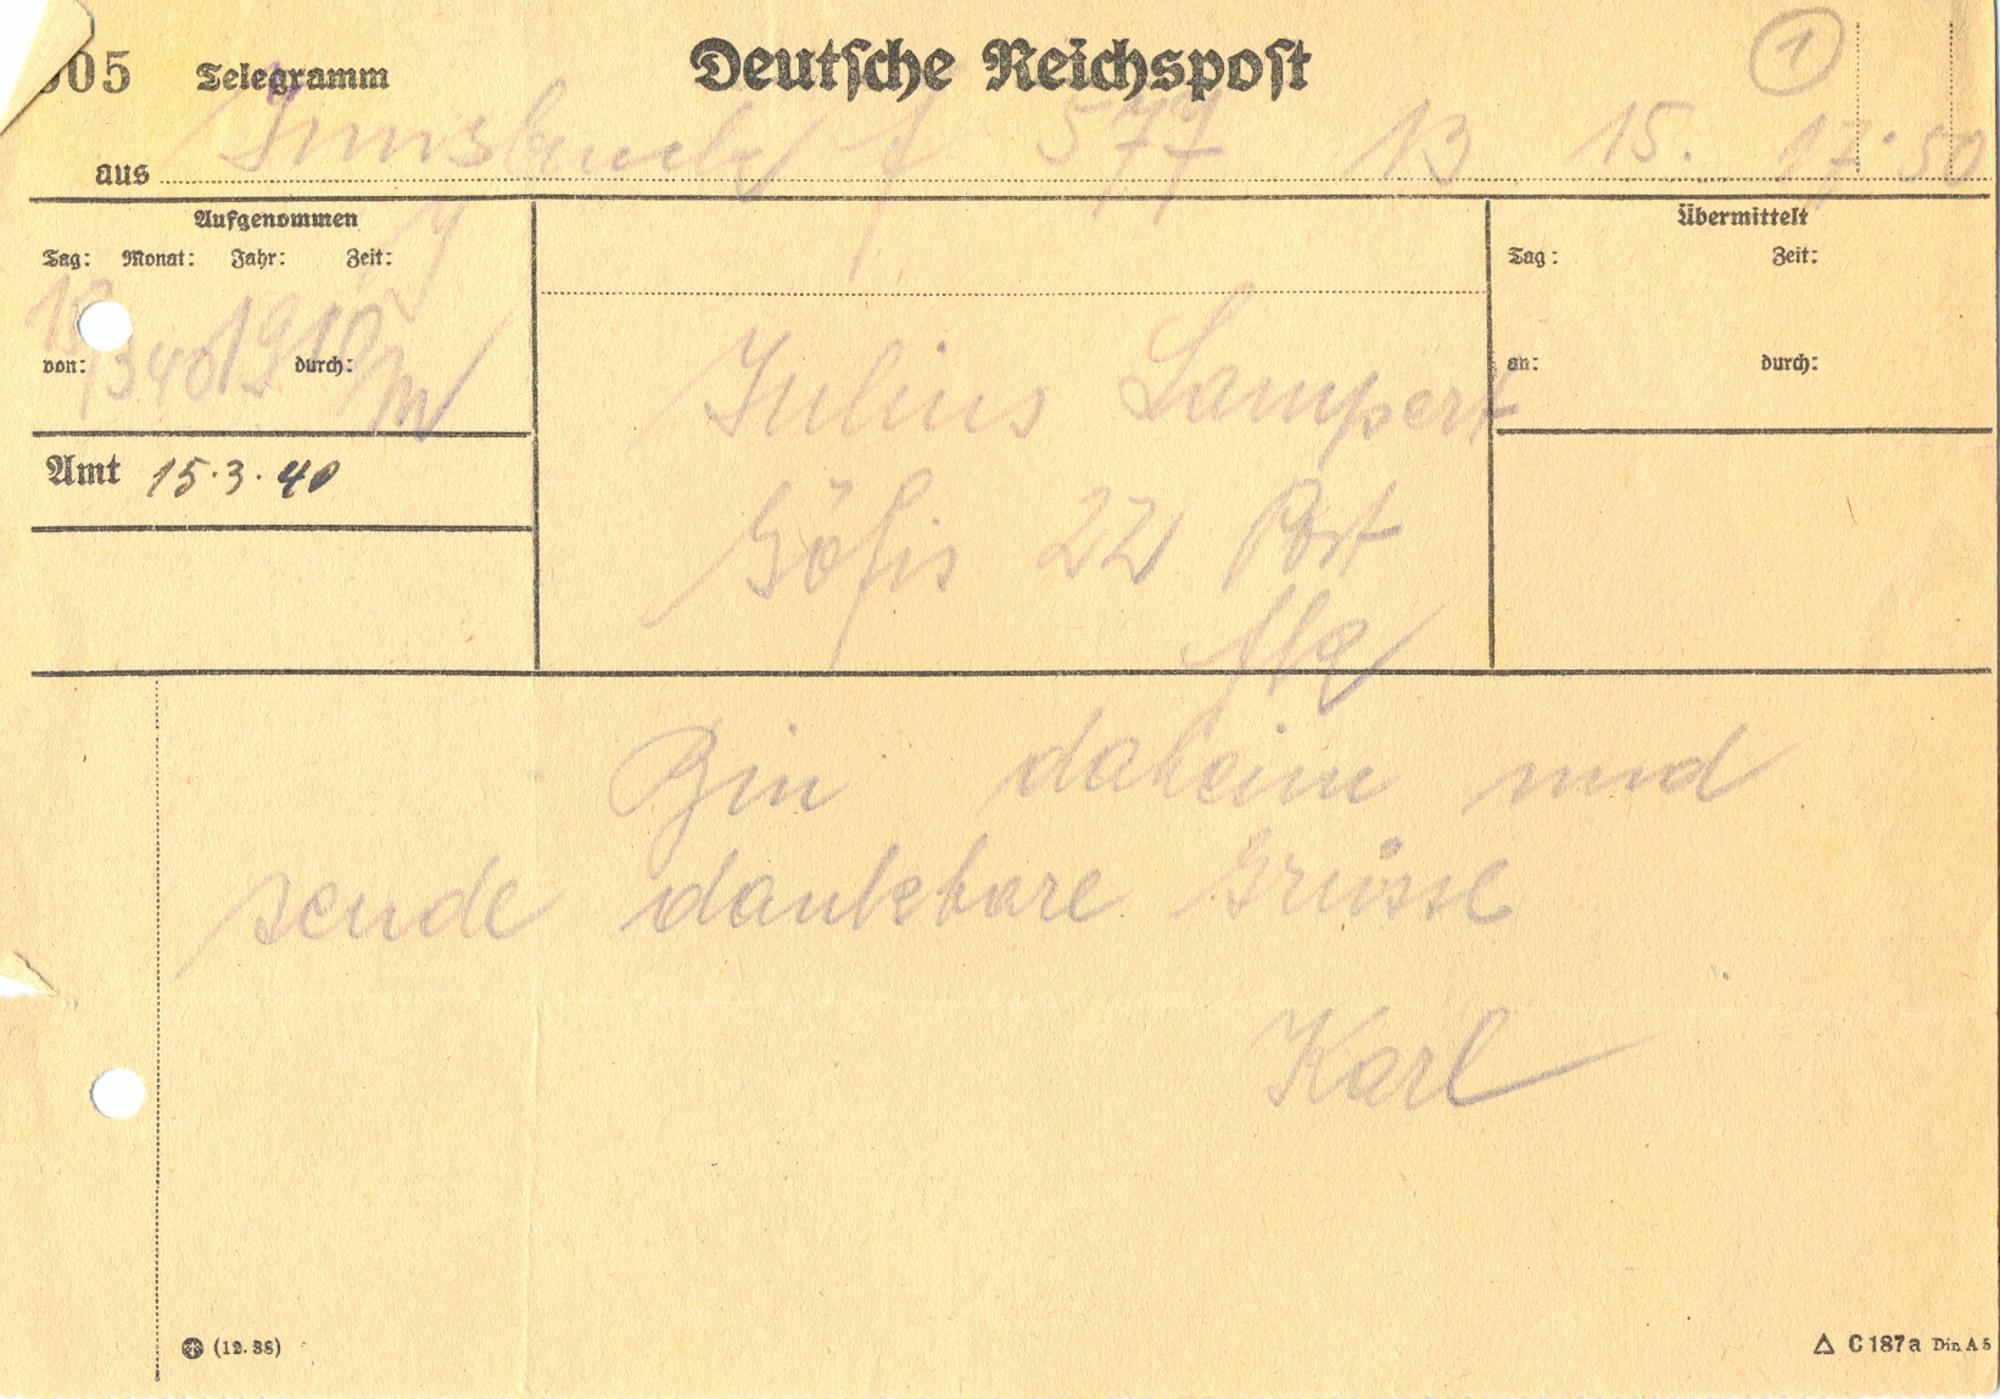 05 Telegramm Deutsche Reichspost 1
aus Innsbruck f 577 13 15. 17.50
Aufgenommen
Tag: Monat: Jahr: Zeit:
von: durch:
Übermittelt
Tag: Zeit:
an: durch:
Amt 15.3.40
Julius Lampert
Göfis 22 Post
Bin daheim und
sende dankbare Grüsse
Karl
(12.38)
C 187a Din A 5